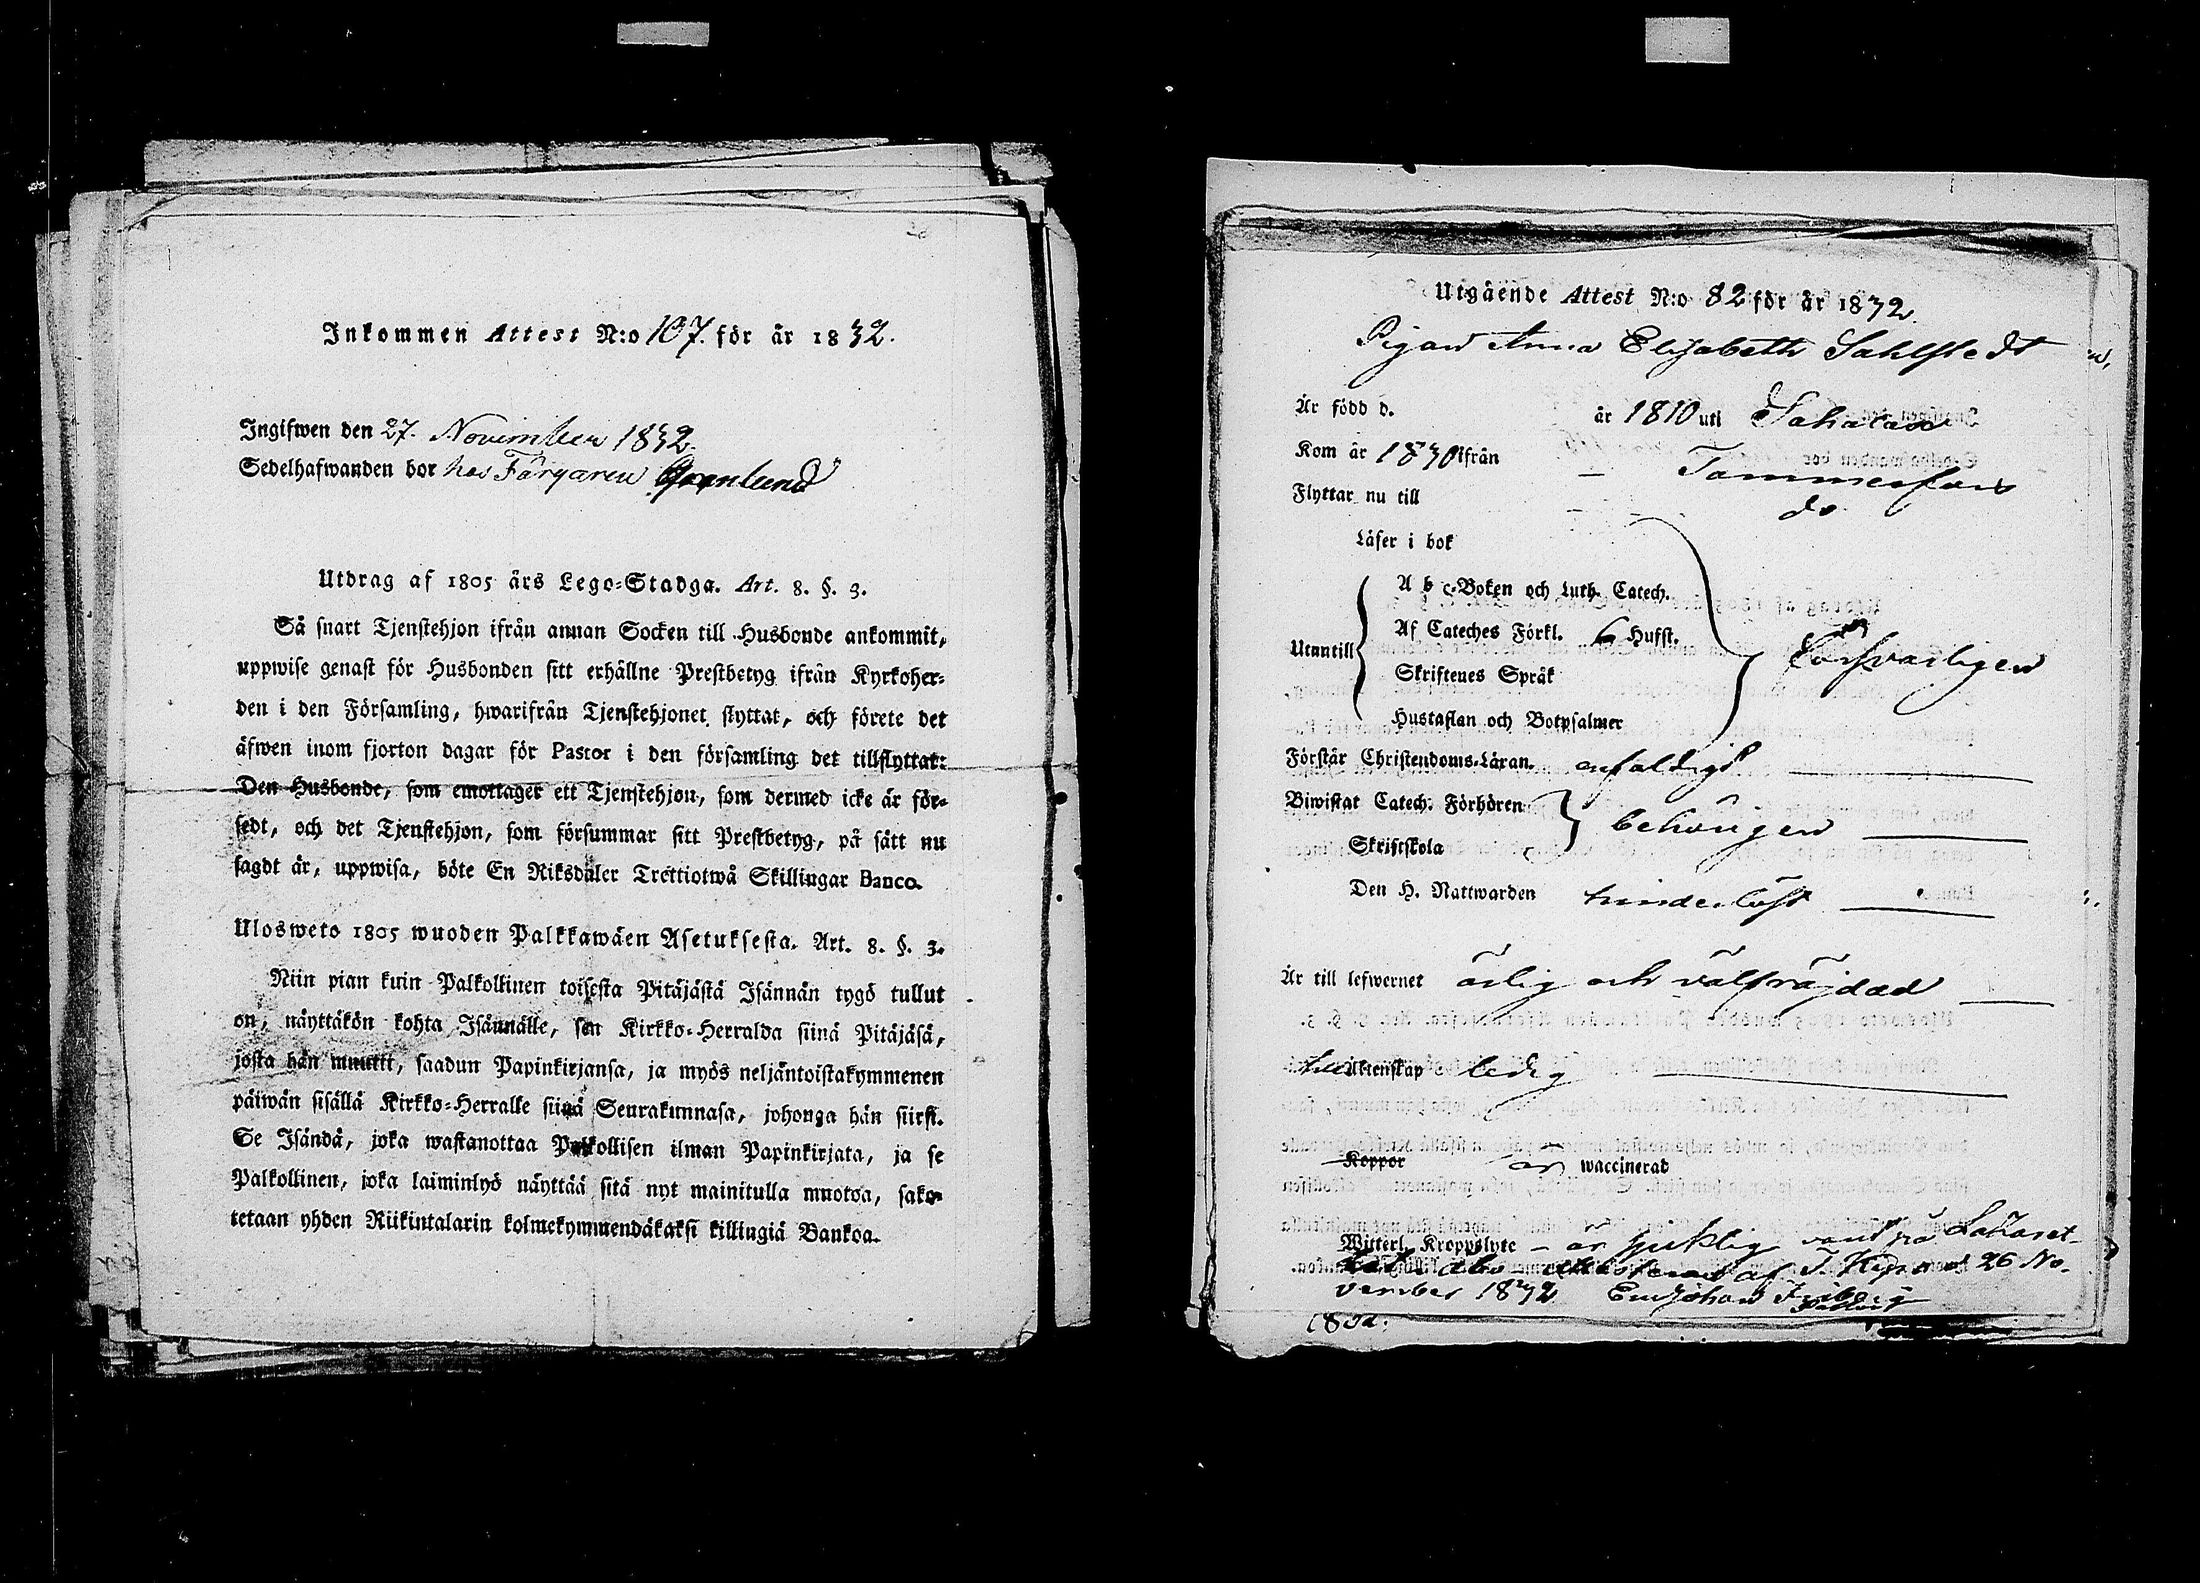 Inkommen Attest N:o 107. för år 1832.
Ingifwen den 27. November 1832.
Sedelhafwanden bor hos Färgaren Grönlund
Utdrag af 1805 års Lego-Stadga. Art. 8. §. 3.
Så snart Tjenstehjon ifrån annan Socken till Husbonde ankommit,
uppwise genast för Husbonden sitt erhållne Prestbetyg ifrån Kyrkoher-
den i den Församling, hwarifrån Tjenstehjonet flyttat, och förete det
äfwen inom fjorton dagar för Pastor i den församling det tillflyttat:
Den Husbonde, som emottager ett Tjenstehjon, som dermed icke är för-
sedt, och det Tjenstehjon, som försummar sitt Prestbetyg, på sätt nu
sagdt är, uppwisa, böte En Riksdaler Trettiotwå Skillingar Banco.
Ulosweto 1805 wuoden Palkkawäen Asetuksesta. Art. 8. §. 3.
Niin pian kuin Palkollinen toisesta Pitäjästä Isännän tygö tullut
on, näyttäkön kohta Isännälle, sen Kirkko-Herralda siinä Pitäjäsä,
josta hän muutti, saadun Papinkirjansa, ja myös neljäntoistakymmenen
päiwän sisällä Kirkko-Herralle siinä Seurakunnasa, johonga hän siirsi.
Se Isändä, joka wastanottaa Palkollisen ilman Papinkirjata, ja se
Palkollinen, joka laiminlyö näyttää sitä nyt mainitulla muotoa, sako-
tetaan yhden Riikintalarin kolmekymmendäkaksi killingiä Bankoa.
Utgående Attest N:o 82 för år 1832.
Pigan Anna Elisabeth Sahlstedt
Är född d. år 1810 uti Sahalax
Kom år 1830 ifrån Tammerfors
Flyttar nu till do
Läser i bok
A b c-Boken och Luth. Catech.
Af Cateches Förkl. 6 Hufst.
Utantill Försvarligen
Skriftenes Språk
Hustaflan och Botpsalmer
Förstår Christendoms-Läran. enfaldigt
Biwistat Catech. Förhören behörigen
Skriftskola
Den H. Nattwarden hinderlöst
Är till lefwernet ärlig och välfräjdad
till Äktenskap ledig
Koppor är waccinerad
Witterl. Kroppslyte - är sjuklig vant på Lazaret-
af T. Kyro den 26 No-
vember 1832 Em Johan Friberg